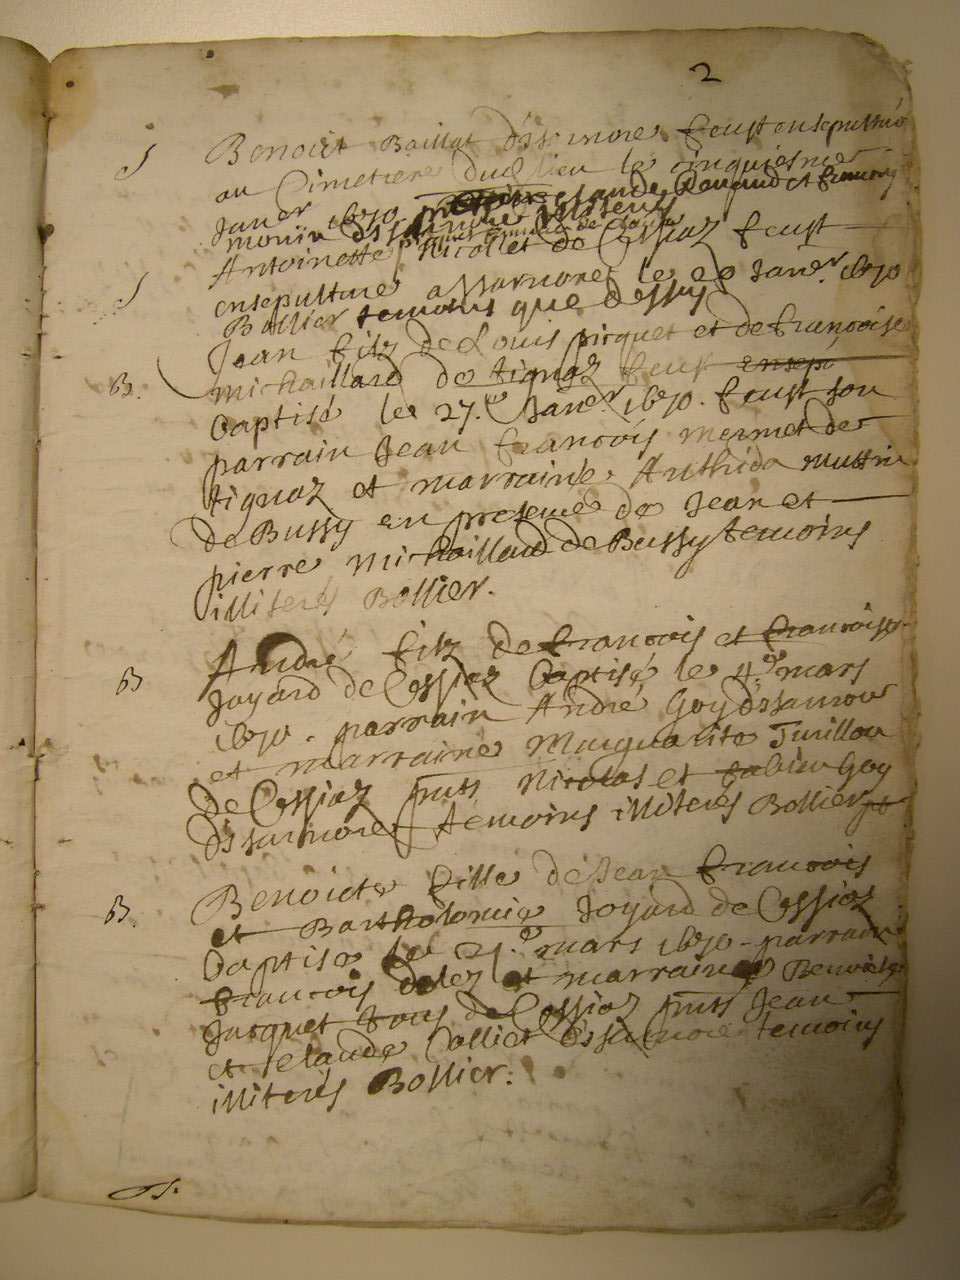 2
S Benoist Baillat d'Isarnore feust ensepulturé
au Cimetiere dud lieu le cinquiesme
Janer 1670 claude et
monin d'Isarnore illiterés
Antoinette Nicollet de Cessiaz feust
S ensepulturée a Isarnore le 20 Janer. 1670
Bollier temoins que dessus
Jean filz de Louis picquet et de francoise
B. michaillard de tignaz feust ensepu
baptisé le 27.e Janer. 1670. feust son
parrain Jean francois mermet de
tignaz et marraine Anthida
de Bussy en presence de Jean et
pierre michaillard de Bussy temoins
illiterés Bollier.
André filz de francois et francoise
B Joyard de Cessiaz baptisé le 4.e mars
1670. parrain André Goy d'Isarnore
et marraine Marguerite
de Cessiaz pnts Nicolas et Goy
d'Isarnore temoins illiterés Bollier
Benoicte fille de Jean francois
B. et Bartholomie Joyard de Cessiaz
baptisée le 21.e mars 1670 - parrain
francois et marraine Benoiste
Jacquet tous de Cessiaz pnts Jean
et claude d'Isarnore temoins
illiterés Bollier.